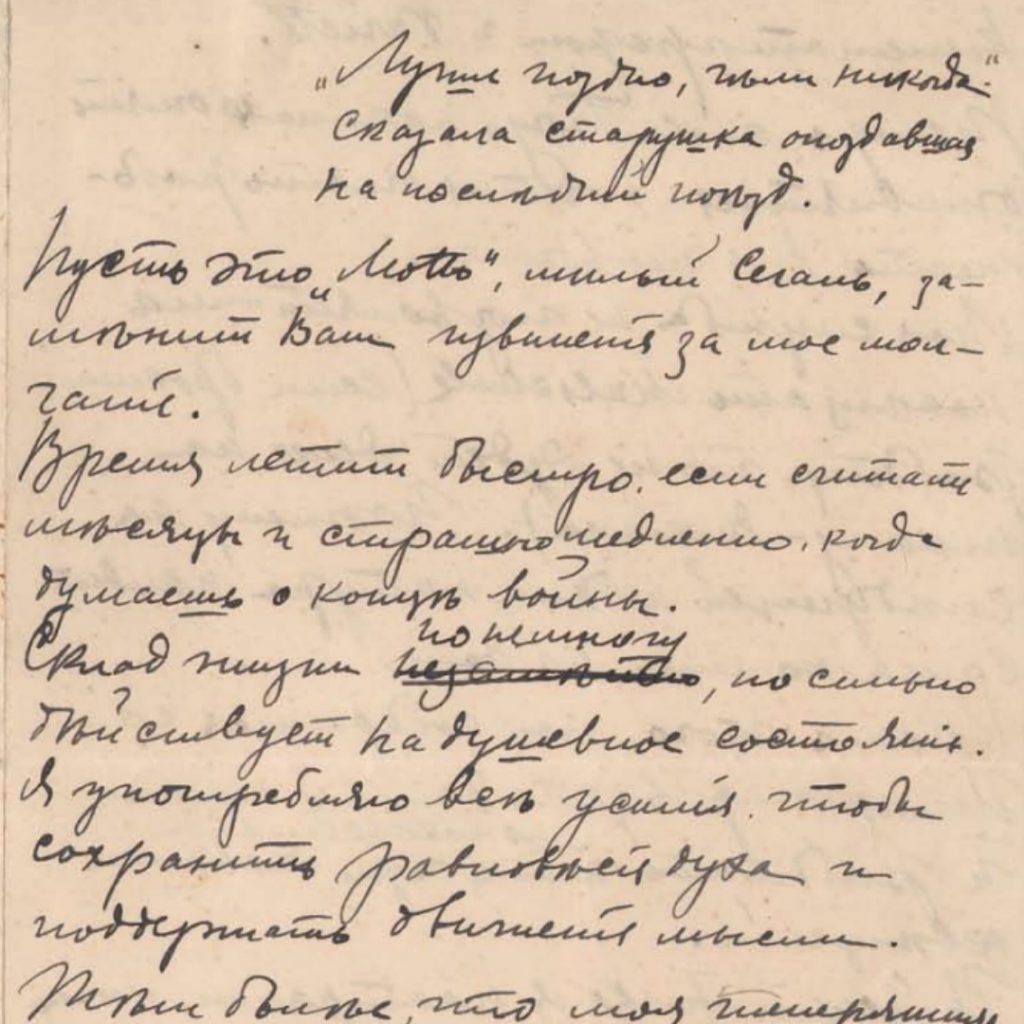 „Лучше поздно, чѣмъ никогда“
сказала старушка опоздавшая
на послѣдній поѣздъ.
Пусть это „Motto“, милый Сегаль, за-
мѣнитъ Вамъ извиненія за мое мол-
чаніе.
Время летитъ быстро, если считать
мѣсяцы и страшно медленно, когда
думаешь о концѣ войны.
понемногу
Складъ жизни незамѣтно, но сильно
дѣйствуетъ на душевное состояніе.
Я употребляю всѣ усилія, чтобы
сохранить равновѣсіе духа и
поддержать движенія мысли.
Тѣмъ болѣе, что моя теперяшняя